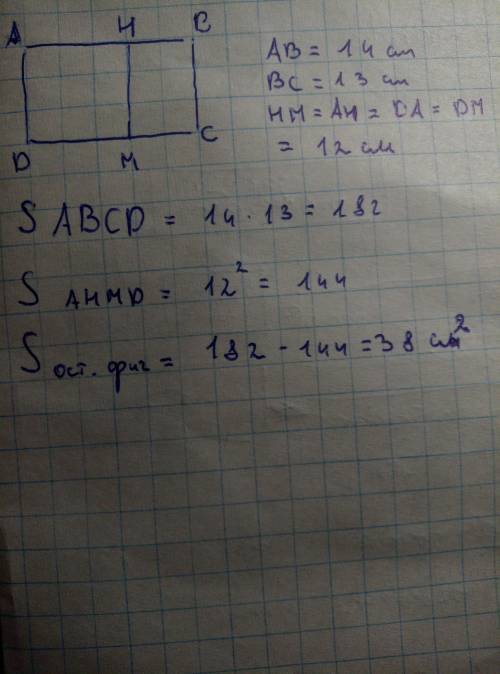 A H B
D M C
AB = 14 см
BC = 13 см
HM = AH = DA = DM
= 12 см
S ABCD = 14 · 13 = 182
S AHMD = 12² = 144
S ост. фиг = 182 - 144 = 38 см²